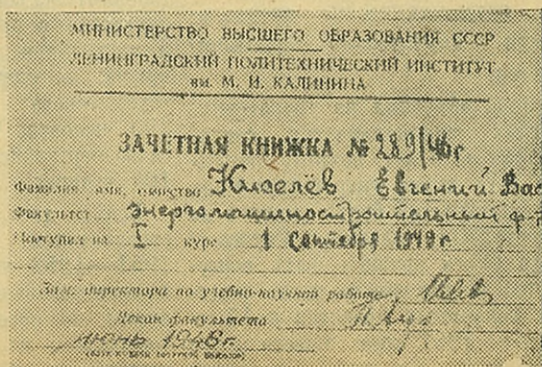 МИНИСТЕРСТВО ВЫСШЕГО ОБРАЗОВАНИЯ СССР
ЛЕНИНГРАДСКИЙ ПОЛИТЕХНИЧЕСКИЙ ИНСТИТУТ
им. М. И. КАЛИНИНА
ЗАЧЕТНАЯ КНИЖКА № 289/46г
Фамилия, имя, отчество Киселёв Евгений Вас
Факультет Энергомашиностроительный ф-
Поступил на I курс 1 Сентября
Зам. директора по учебно-научной работе
Декан факультета